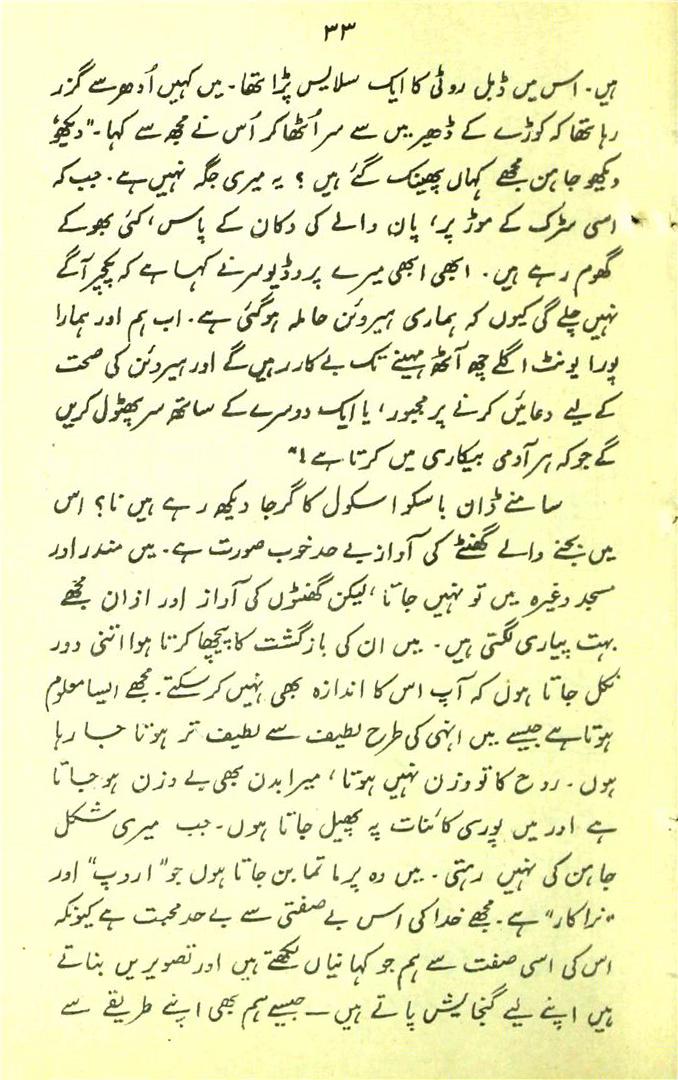 ۳۳
ہیں۔ اس میں ڈبل روٹی کا ایک سلایس پڑا تھا۔ میں کہیں اُدھر سے گزر
رہا تھا کہ کوڑے کے ڈھیر میں سے سر اُٹھا کر اُس نے مجھ سے کہا۔ "دیکھو
دیکھو جاہن مجھے کہاں پھینک گئے ہیں ؟ یہ میری جگہ نہیں ہے۔ جب کہ
اسی سڑک کے موڑ پر، پان والے کی دکان کے پاس، کئی بھوکے
گھوم رہے ہیں۔ ابھی ابھی میرے پروڈیوسر نے کہا ہے کہ پکچر آگے
نہیں چلے گی کیوں کہ ہماری ہیروئن حاملہ ہوگئی ہے۔ اب ہم اور ہمارا
پورا یونٹ اگلے چھ آٹھ مہینے تک بے کار رہیں گے اور ہیروئن کی صحت
کے لیے دعائیں کرنے پر مجبور، یا ایک دوسرے کے ساتھ سر پھٹول کریں
گے جو کہ ہر آدمی بیکاری میں کرتا ہے!"
سامنے ڈان باسکو اسکول کا گرجا دیکھ رہے ہیں نا؟ اس
میں بجنے والے گھنٹے کی آواز بے حد خوب صورت ہے۔ میں مندر اور
مسجد وغیرہ میں تو نہیں جاتا، لیکن گھنٹوں کی آواز اور اذان مجھے
بہت پیاری لگتی ہیں۔ میں ان کی بازگشت کا پیچھا کرتا ہوا اتنی دور
نکل جاتا ہوں کہ آپ اس کا اندازہ بھی نہیں کر سکتے۔ مجھے ایسا معلوم
ہوتا ہے جیسے میں انہی کی طرح لطیف سے لطیف تر ہوتا جا رہا
ہوں۔ روح کا تو وزن نہیں ہوتا، میرا بدن بھی بے وزن ہو جاتا
ہے اور میں پوری کائنات پہ پھیل جاتا ہوں۔ جب میری شکل
جاہن کی نہیں رہتی۔ میں وہ پرماتما بن جاتا ہوں جو "اروپ" اور
"نراکار" ہے۔ مجھے خدا کی اس بے صفتی سے بے حد محبت ہے کیونکہ
اس کی اسی صفت سے ہم جو کہانیاں لکھتے ہیں اور تصویریں بناتے
ہیں اپنے لیے گنجایش پاتے ہیں — جیسے ہم بھی اپنے طریقے سے